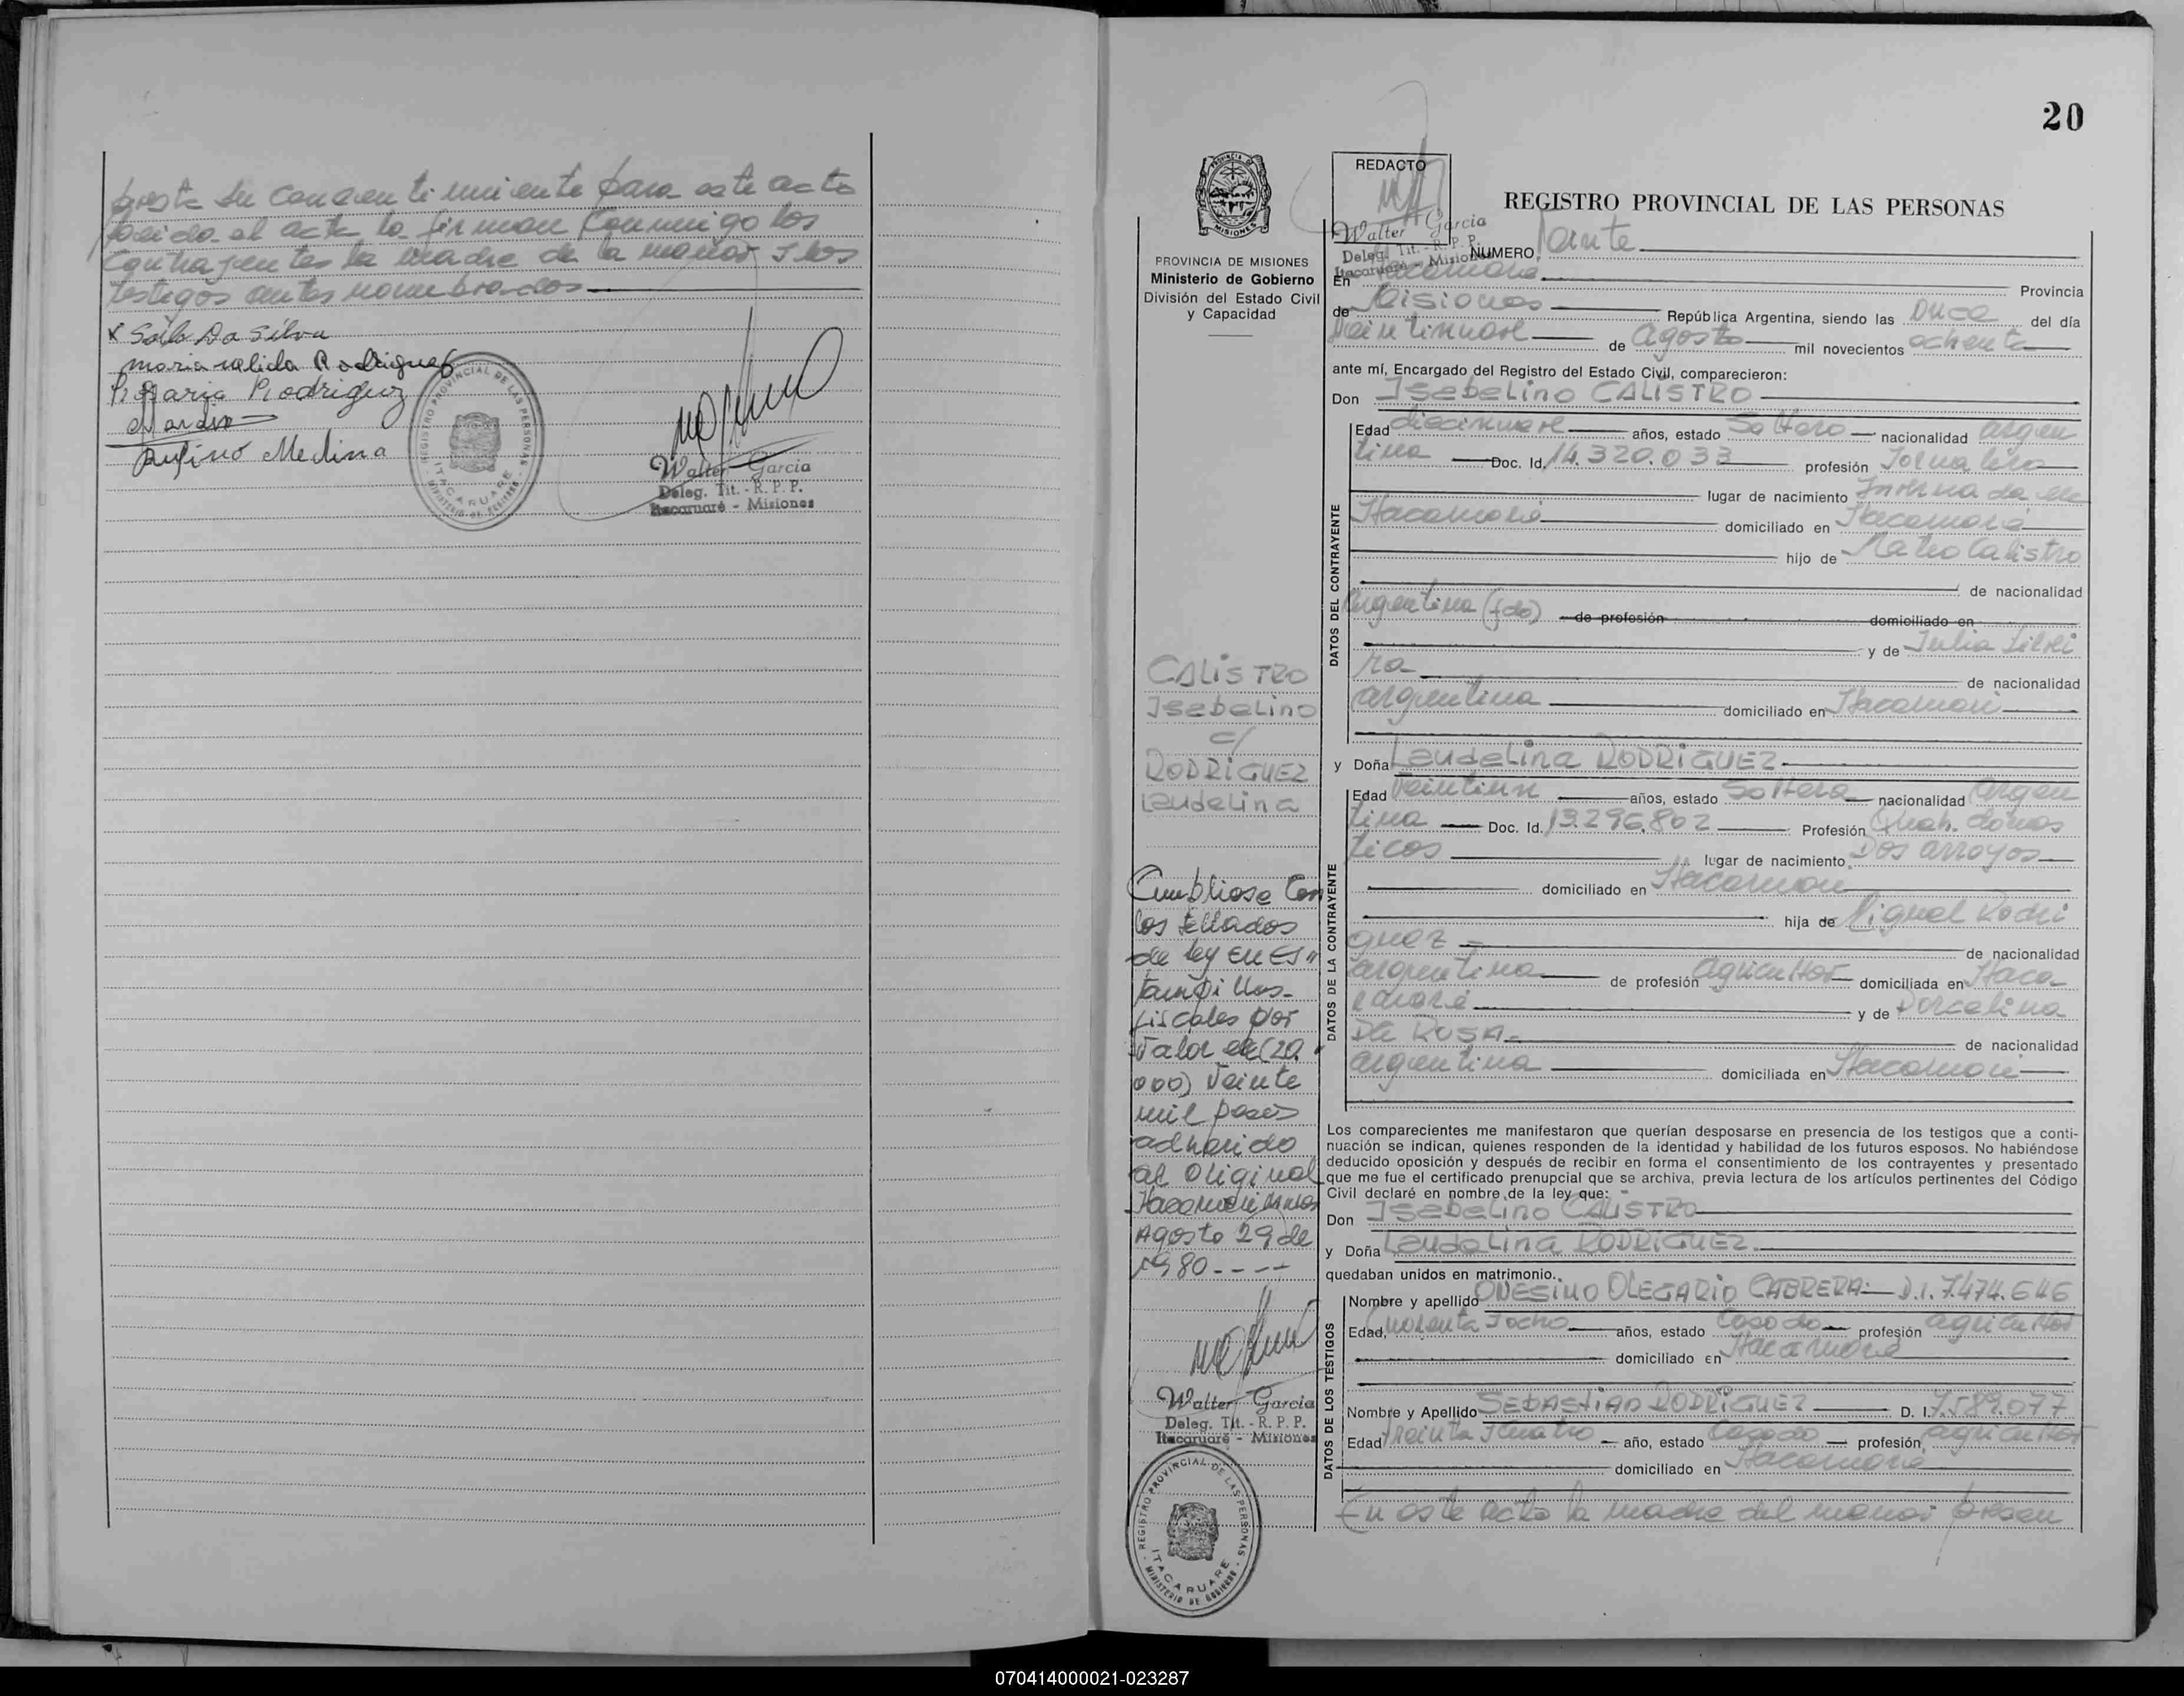 presta su consentimiento para este acto
leida el acta la firman conmigo los
contrayentes la madre de la menor y los
testigos antes nombrados
x Da Silva
maria Rodriguez
Rosaria Rodriguez
Rufino Medina
REGISTRO PROVINCIAL DE LAS PERSONAS
ITACARUARE
MINISTERIO DE GOBIERNO
Walter Garcia
Deleg. Tit. - R. P. P.
Itacaruaré - Misiones
20
PROVINCIA DE MISIONES
PROVINCIA DE MISIONES
Ministerio de Gobierno
División del Estado Civil
y Capacidad
CALISTRO
Isebelino
c/
RODRIGUEZ
Leudelina
Cumpliose con
los sellados
de ley en es"
tampillas
fiscales por
valor de (20.
000) veinte
mil pesos
adherido
al original
Agosto 29 de
1980----
Walter Garcia
Deleg. Tit. - R. P. P.
Itacaruaré - Misiones
REGISTRO PROVINCIAL DE LAS PERSONAS
ITACARUARE
MINISTERIO DE GOBIERNO
REDACTO
Walter Garcia
Deleg. Tit. - R. P. P.
Itacaruaré - Misiones
REGISTRO PROVINCIAL DE LAS PERSONAS
NUMERO Veinte
En Itacaruaré Provincia
de Misiones República Argentina, siendo las once del día
veintinueve de Agosto mil novecientos ochenta
ante mí, Encargado del Registro del Estado Civil, comparecieron:
Don Isebelino CALISTRO
DATOS DEL CONTRAYENTE
Edad diecinueve años, estado Soltero nacionalidad argen
tina Doc. Id. 14.320.033 profesión Jornalero
lugar de nacimiento
Itacaruaré domiciliado en Itacaruaré
hijo de Mateo Calistro
de nacionalidad
Argentina (fdo) de profesión domiciliado en
y de Julia Silvei
ra de nacionalidad
argentina domiciliado en Itacaruaré
y Doña Leudelina RODRIGUEZ
DATOS DE LA CONTRAYENTE
Edad Veintiun años, estado Soltera nacionalidad argen
tina Doc. Id. 13.296.802 Profesión Queh. domes
ticos lugar de nacimiento Dos arroyos
domiciliado en Itacaruaré
hija de Miguel Rodri
guez de nacionalidad
argentina de profesión agricultor domiciliada en Itaca
ruaré y de Dorcelina
DA ROSA de nacionalidad
argentina domiciliada en Itacaruaré
Los comparecientes me manifestaron que querían desposarse en presencia de los testigos que a conti-
nuación se indican, quienes responden de la identidad y habilidad de los futuros esposos. No habiéndose
deducido oposición y después de recibir en forma el consentimiento de los contrayentes y presentado
que me fue el certificado prenupcial que se archiva, previa lectura de los artículos pertinentes del Código
Civil declaré en nombre de la ley que:
Don Isebelino CALISTRO
y Doña Leudelina RODRIGUEZ
quedaban unidos en matrimonio.
DATOS DE LOS TESTIGOS
Nombre y apellido ONESIMO OLEGARIO CABRERA D.I. 7.474.646
Edad, cuarenta y ocho años, estado Casado profesión agricultor
domiciliado en Itacaruaré
Nombre y Apellido SEBASTIAN RODRIGUEZ D. I. 7.589.077
Edad treinta y cuatro año, estado Casado profesión agricultor
domiciliado en Itacaruaré
En este acto la madre del menor presen
070414000021-023287